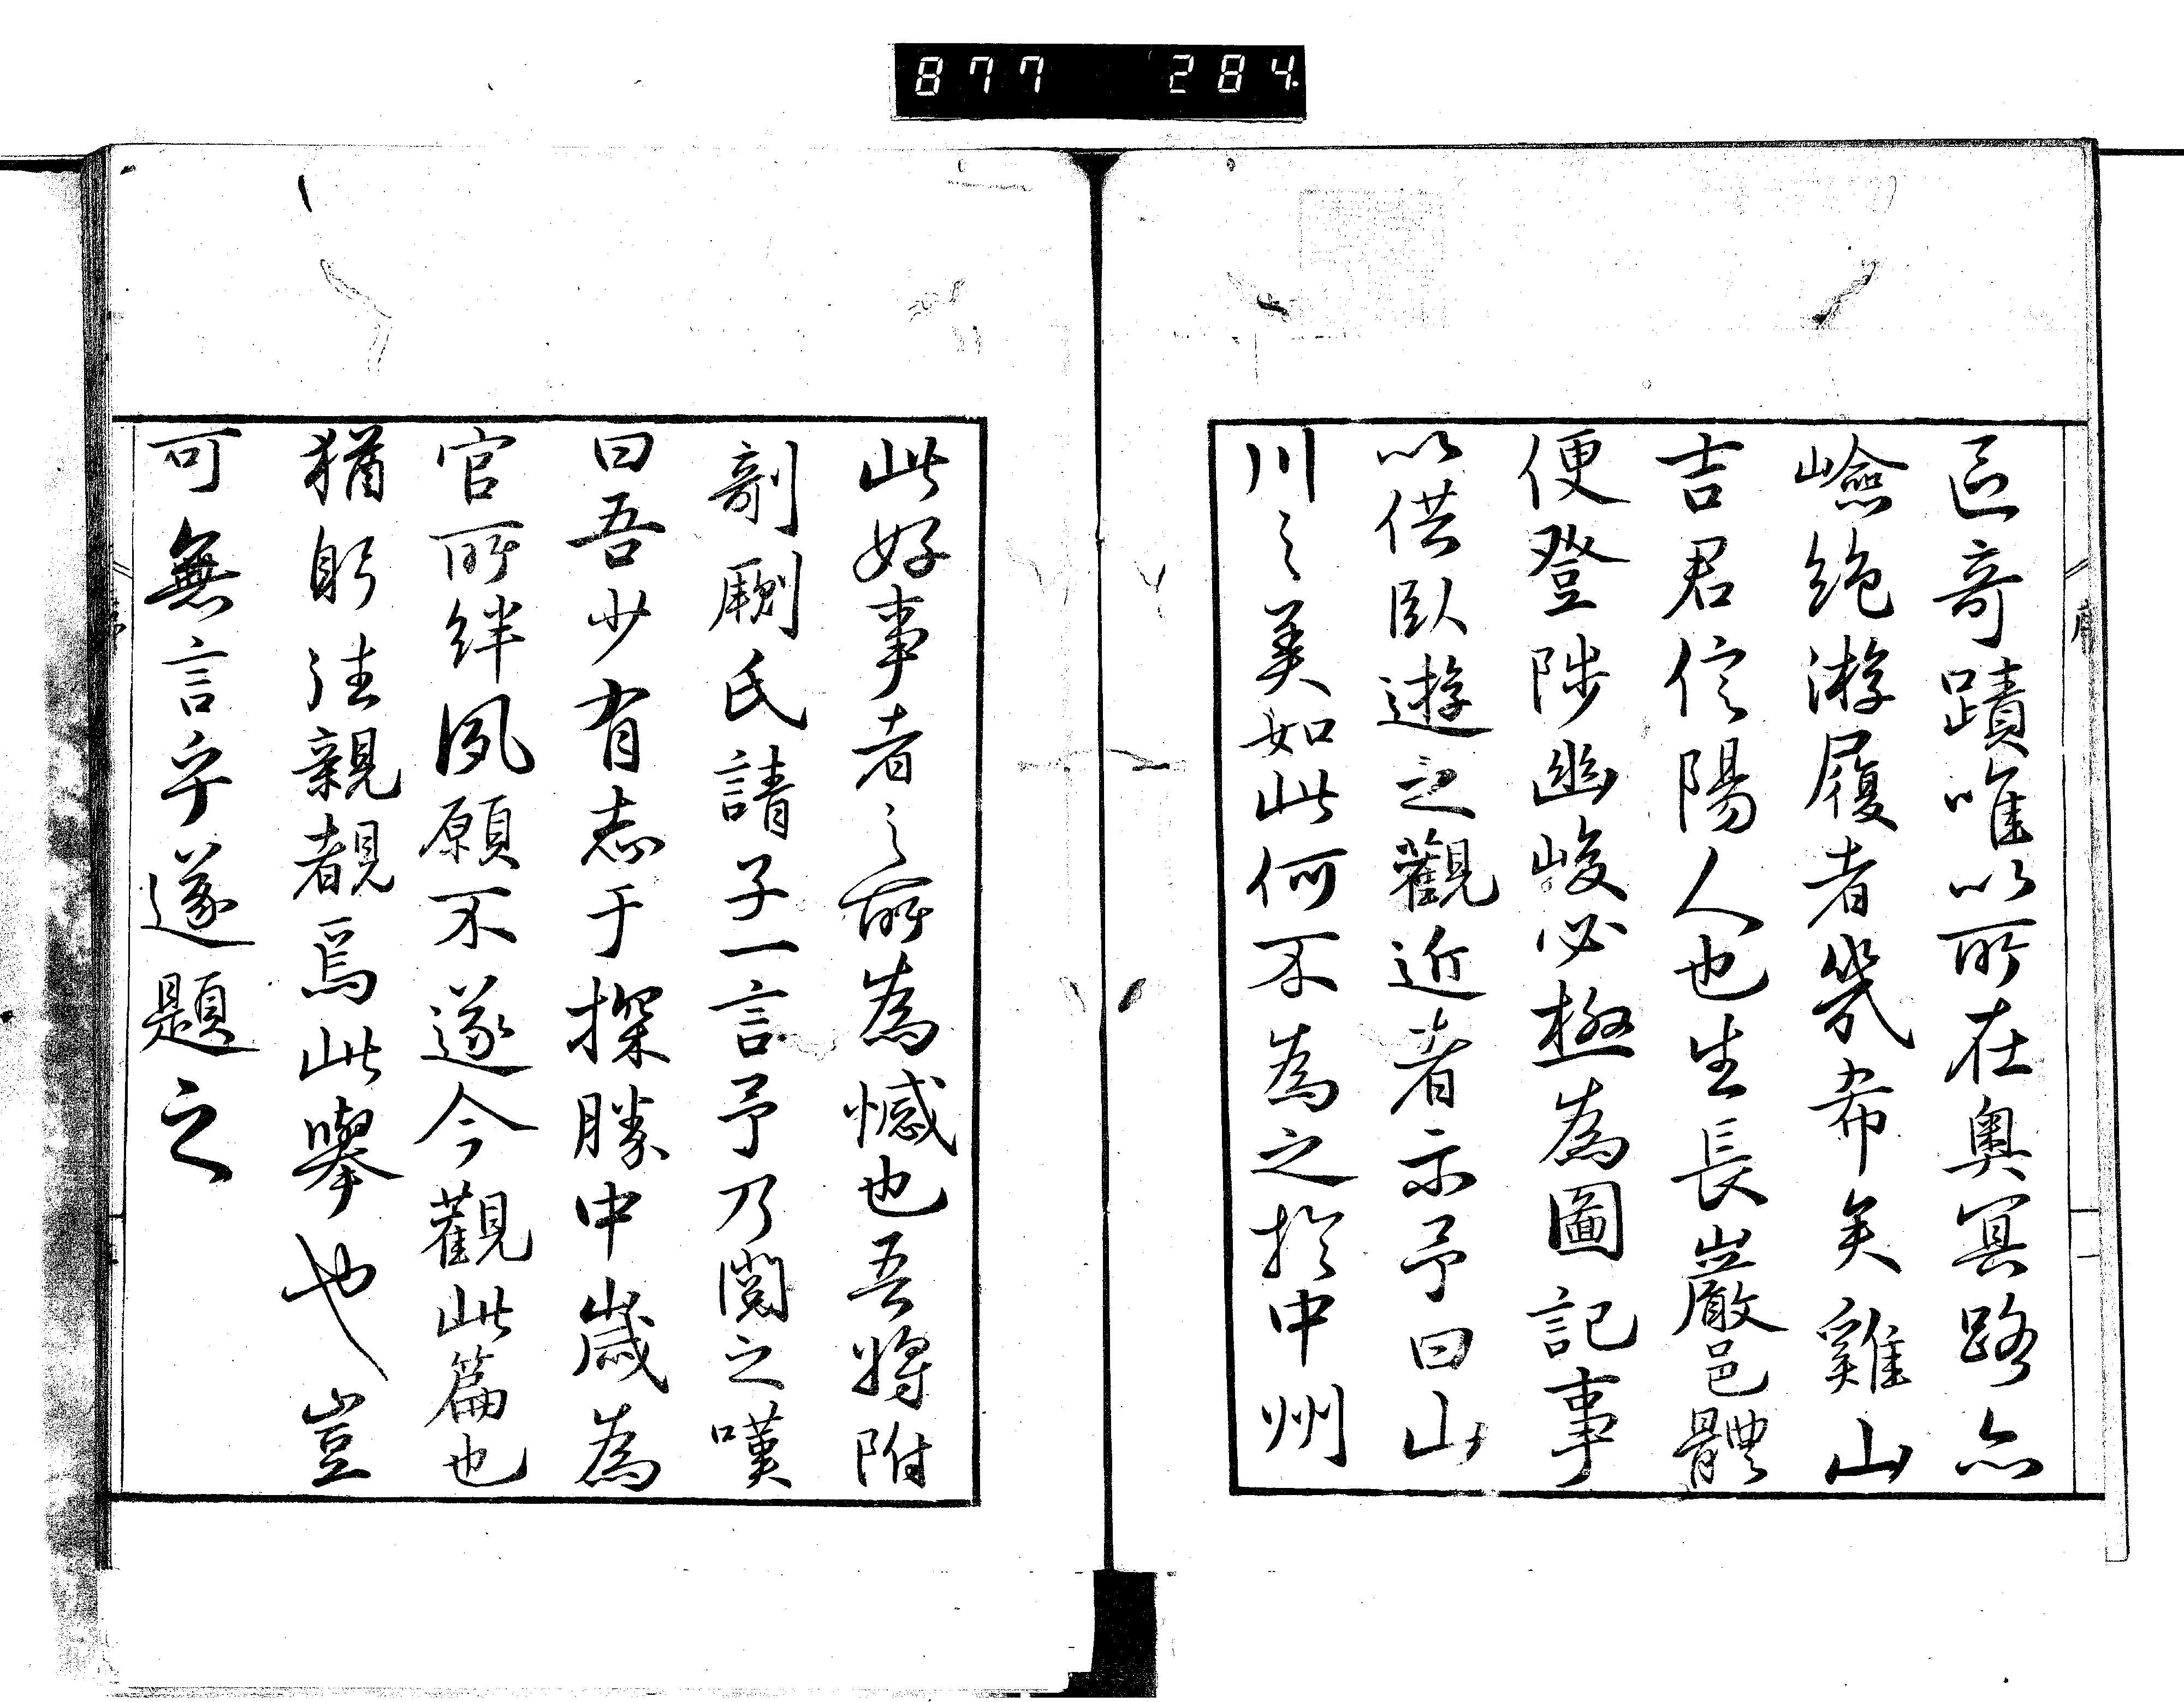 877 284
区奇蹟唯以所在奥冥路亦
嶮絶游履者幾希矣雞山
吉君信陽人也生長巖邑體
便登陟幽峻必極為圖記事
以供臥遊之觀近者示予曰山
川之美如此何不為之於中州
此好事者之所為憾也吾將附
剞劂氏請子一言予乃閲之嘆
曰吾少有志于探勝中歳為
官所絆夙願不遂今觀此篇也
猶躬往親覩焉此擧也豈
可無言乎遂題之